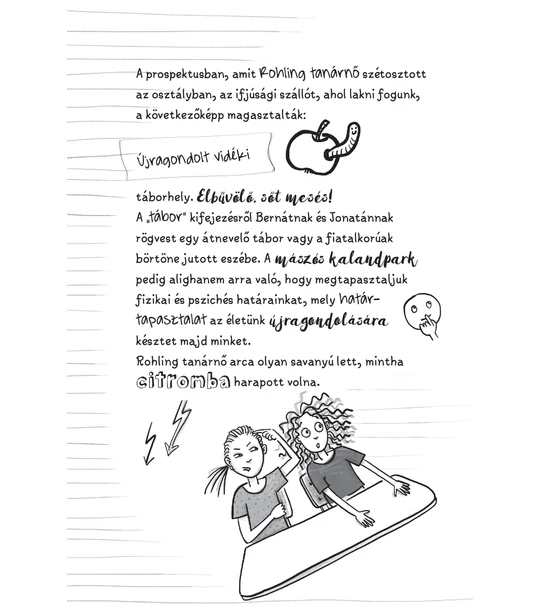 A prospektusban, amit Rohling tanárnő szétosztott
az osztályban, az ifjúsági szállót, ahol lakni fogunk,
a következőképp magasztalták:
Újragondolt vidéki
táborhely. Elbűvölő, sőt mesés!
A „tábor" kifejezésről Bernátnak és Jonatánnak
rögvest egy átnevelő tábor vagy a fiatalkorúak
börtöne jutott eszébe. A mászós kalandpark
pedig alighanem arra való, hogy megtapasztaljuk
fizikai és pszichés határainkat, mely határ-
tapasztalat az életünk újragondolására
késztet majd minket.
Rohling tanárnő arca olyan savanyú lett, mintha
citromba harapott volna.